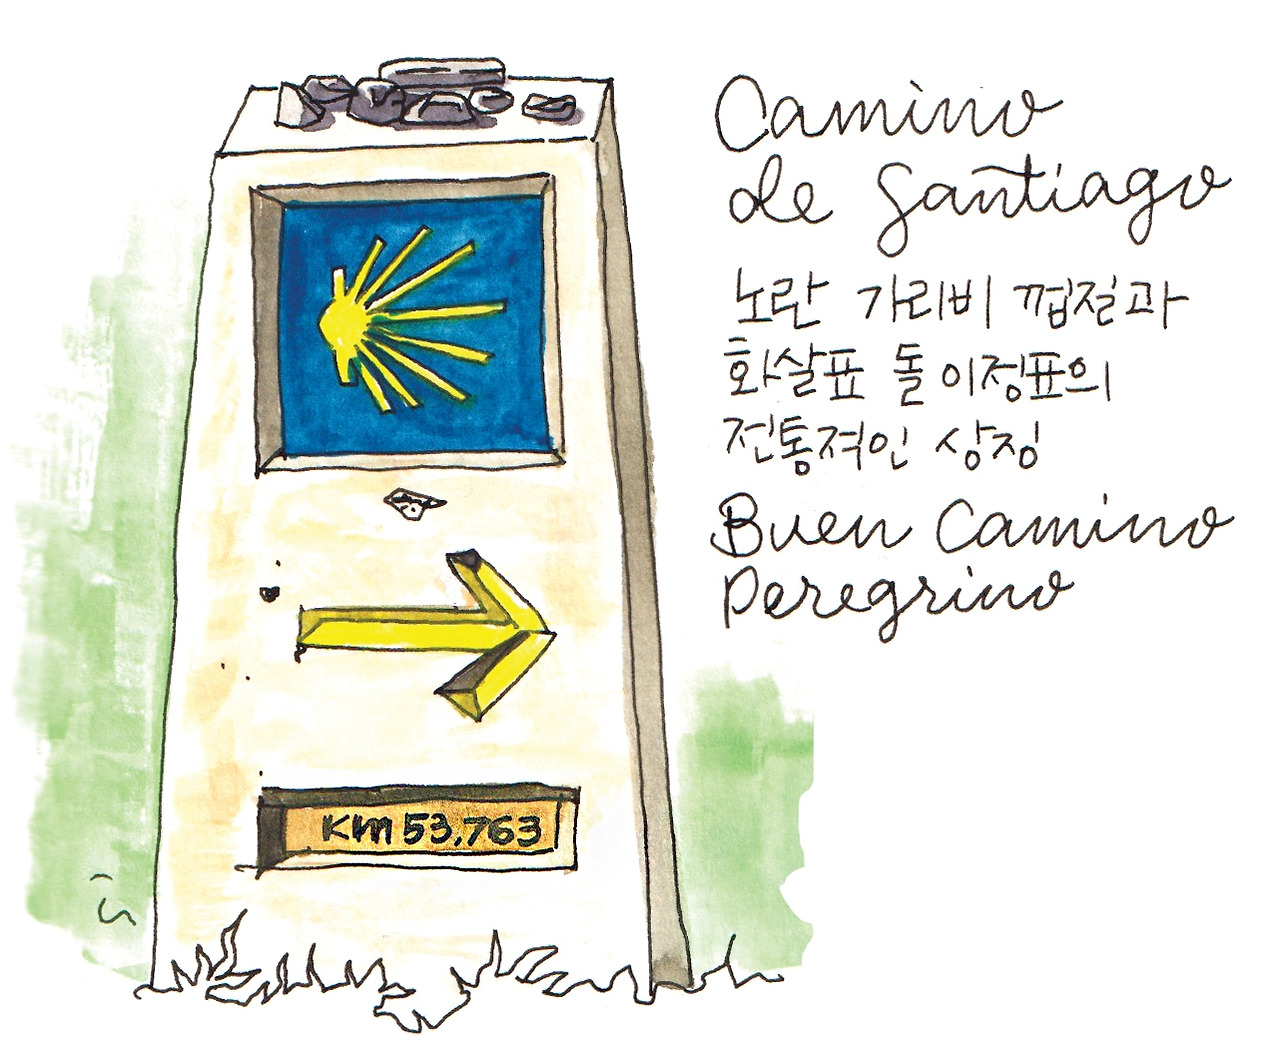 Camino
de Santiago
노란 가리비 껍절과
화살표 돌 이정표의
전통적인 상징
Buen Camino
Peregrino
KM 53,763